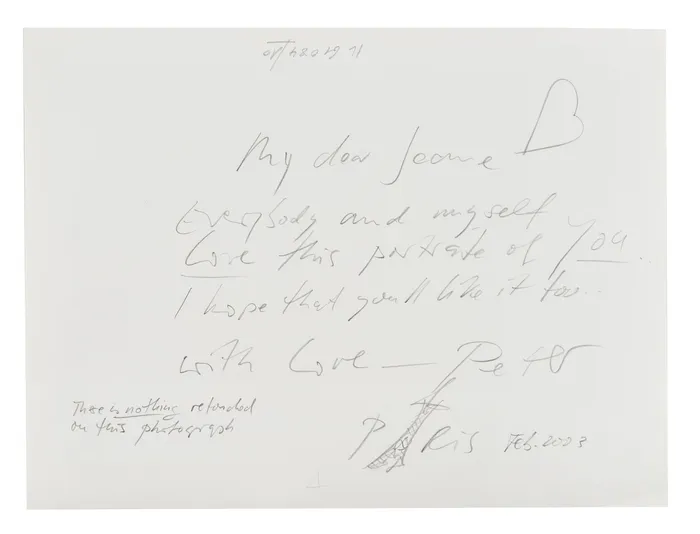 My dear Jeanne
Everybody and myself
Love this portrate of you..
I hope that you'll like it too..
with Love — Peter
There is nothing retouched
on this photograph
PARIS Feb. 2003